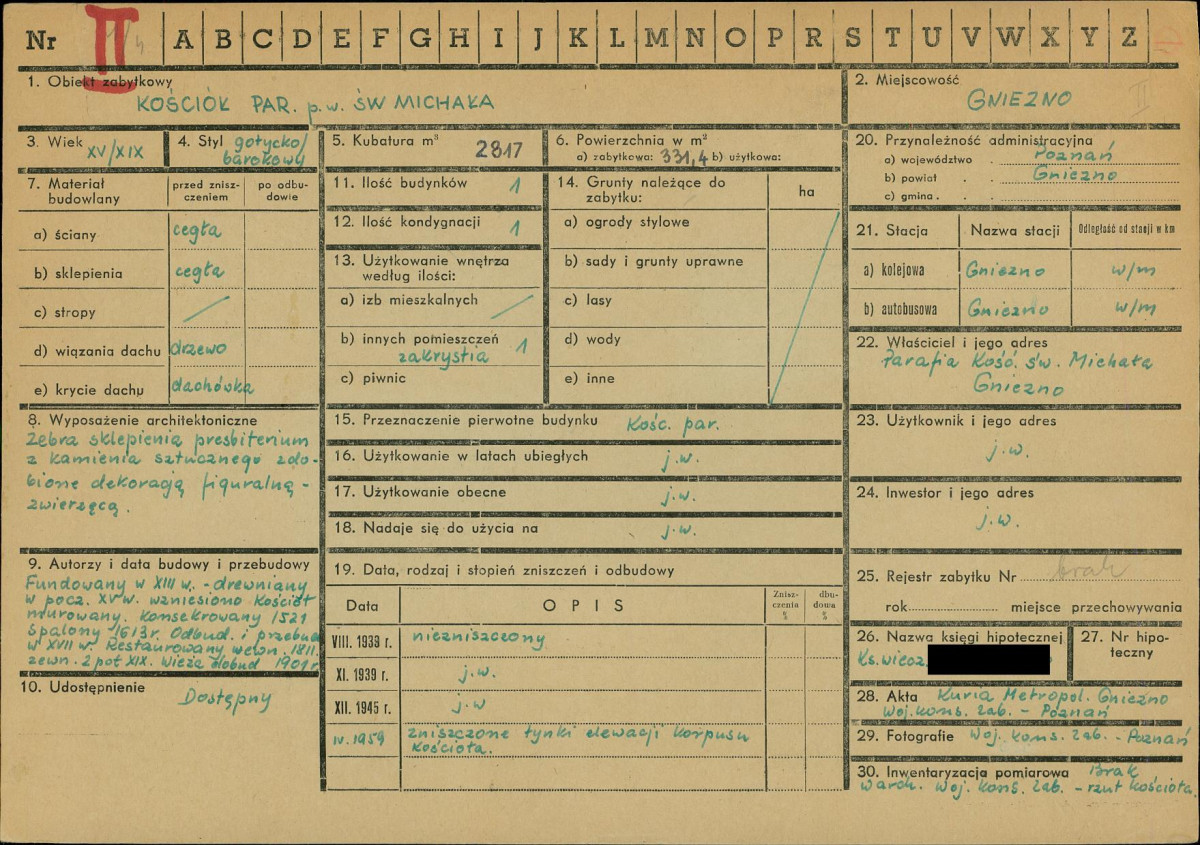 Nr II A B C D E F G H I J K L M N O P R S T U V W X Y Z
1. Obiekt zabytkowy
KOŚCIÓŁ PAR. p.w. ŚW MICHAŁA
2. Miejscowość
GNIEZNO II
3. Wiek XV/XIX
4. Styl gotycko/
barokowy
5. Kubatura m³ 2817
6. Powierzchnia w m²
a) zabytkowa: 331,4 b) użytkowa:
20. Przynależność administracyjna
a) województwo . Poznań
b) powiat . . Gniezno
c) gmina . . .
7. Materiał budowlany
przed znisz-
czeniem
po odbu-
dowie
a) ściany cegła
b) sklepienia cegła
c) stropy /
d) wiązania dachu drzewo
e) krycie dachu dachówka
11. Ilość budynków 1
12. Ilość kondygnacji 1
13. Użytkowanie wnętrza
według ilości:
a) izb mieszkalnych /
b) innych pomieszczeń
zakrystia 1
c) piwnic
14. Grunty należące do
zabytku:
ha
a) ogrody stylowe
b) sady i grunty uprawne
c) lasy
d) wody
e) inne
21. Stacja Nazwa stacji Odległość od stacji w km
a) kolejowa Gniezno w/m
b) autobusowa Gniezno w/m
22. Właściciel i jego adres
Parafia Kość. św. Michała
Gniezno
8. Wyposażenie architektoniczne
Żebra sklepienia presbiterium
z kamienia sztucznego zdo-
bione dekoracją figuralną -
zwierzęcą.
15. Przeznaczenie pierwotne budynku Kośc. par.
16. Użytkowanie w latach ubiegłych j.w.
17. Użytkowanie obecne j.w.
18. Nadaje się do użycia na j.w.
23. Użytkownik i jego adres
j.w.
24. Inwestor i jego adres
j.w.
9. Autorzy i data budowy i przebudowy
Fundowany w XIII w. - drewniany
w pocz. XV w. wzniesiono kościół
murowany. Konsekrowany 1521
spalony 1613 r. Odbud. i przebud
w XVII w. Restaurowany wewn. 1811.
zewn. 2 poł XIX. Wieża dobud 1901 r.
10. Udostępnienie
Dostępny
19. Data, rodzaj i stopień zniszczeń i odbudowy
Data OPIS
Znisz-
czenia
%
dbu-
dowa
%
VIII. 1938 r. niezniszczony
XI. 1939 r. j.w.
XII. 1945 r. j.w
IV. 1959 zniszczone tynki elewacji korpusu
kościoła.
25. Rejestr zabytku Nr brak
rok miejsce przechowywania
26. Nazwa księgi hipotecznej
Ks. wiecz.
27. Nr hipo-
teczny
28. Akta Kuria Metropol. Gniezno
Woj. kons. zab. - Poznań
29. Fotografie Woj. kons. zab. - Poznań
30. Inwentaryzacja pomiarowa Brak
W arch. Woj. kons. zab. - rzut kościoła